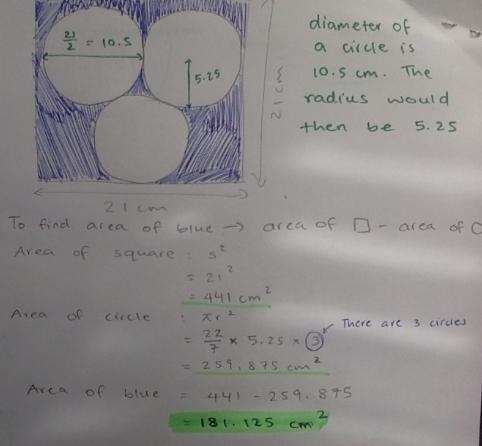 21/2 = 10.5
5.25
21 cm
21 cm
diameter of
a circle is
10.5 cm. The
radius would
then be 5.25
To find area of blue → area of □ - area of O
Area of square : s²
= 21²
= 441 cm²
Area of circle : πr²
There are 3 circles
= 22/7 × 5.25 × 3
= 259.875 cm²
Area of blue = 441 - 259.875
= 181.125 cm²